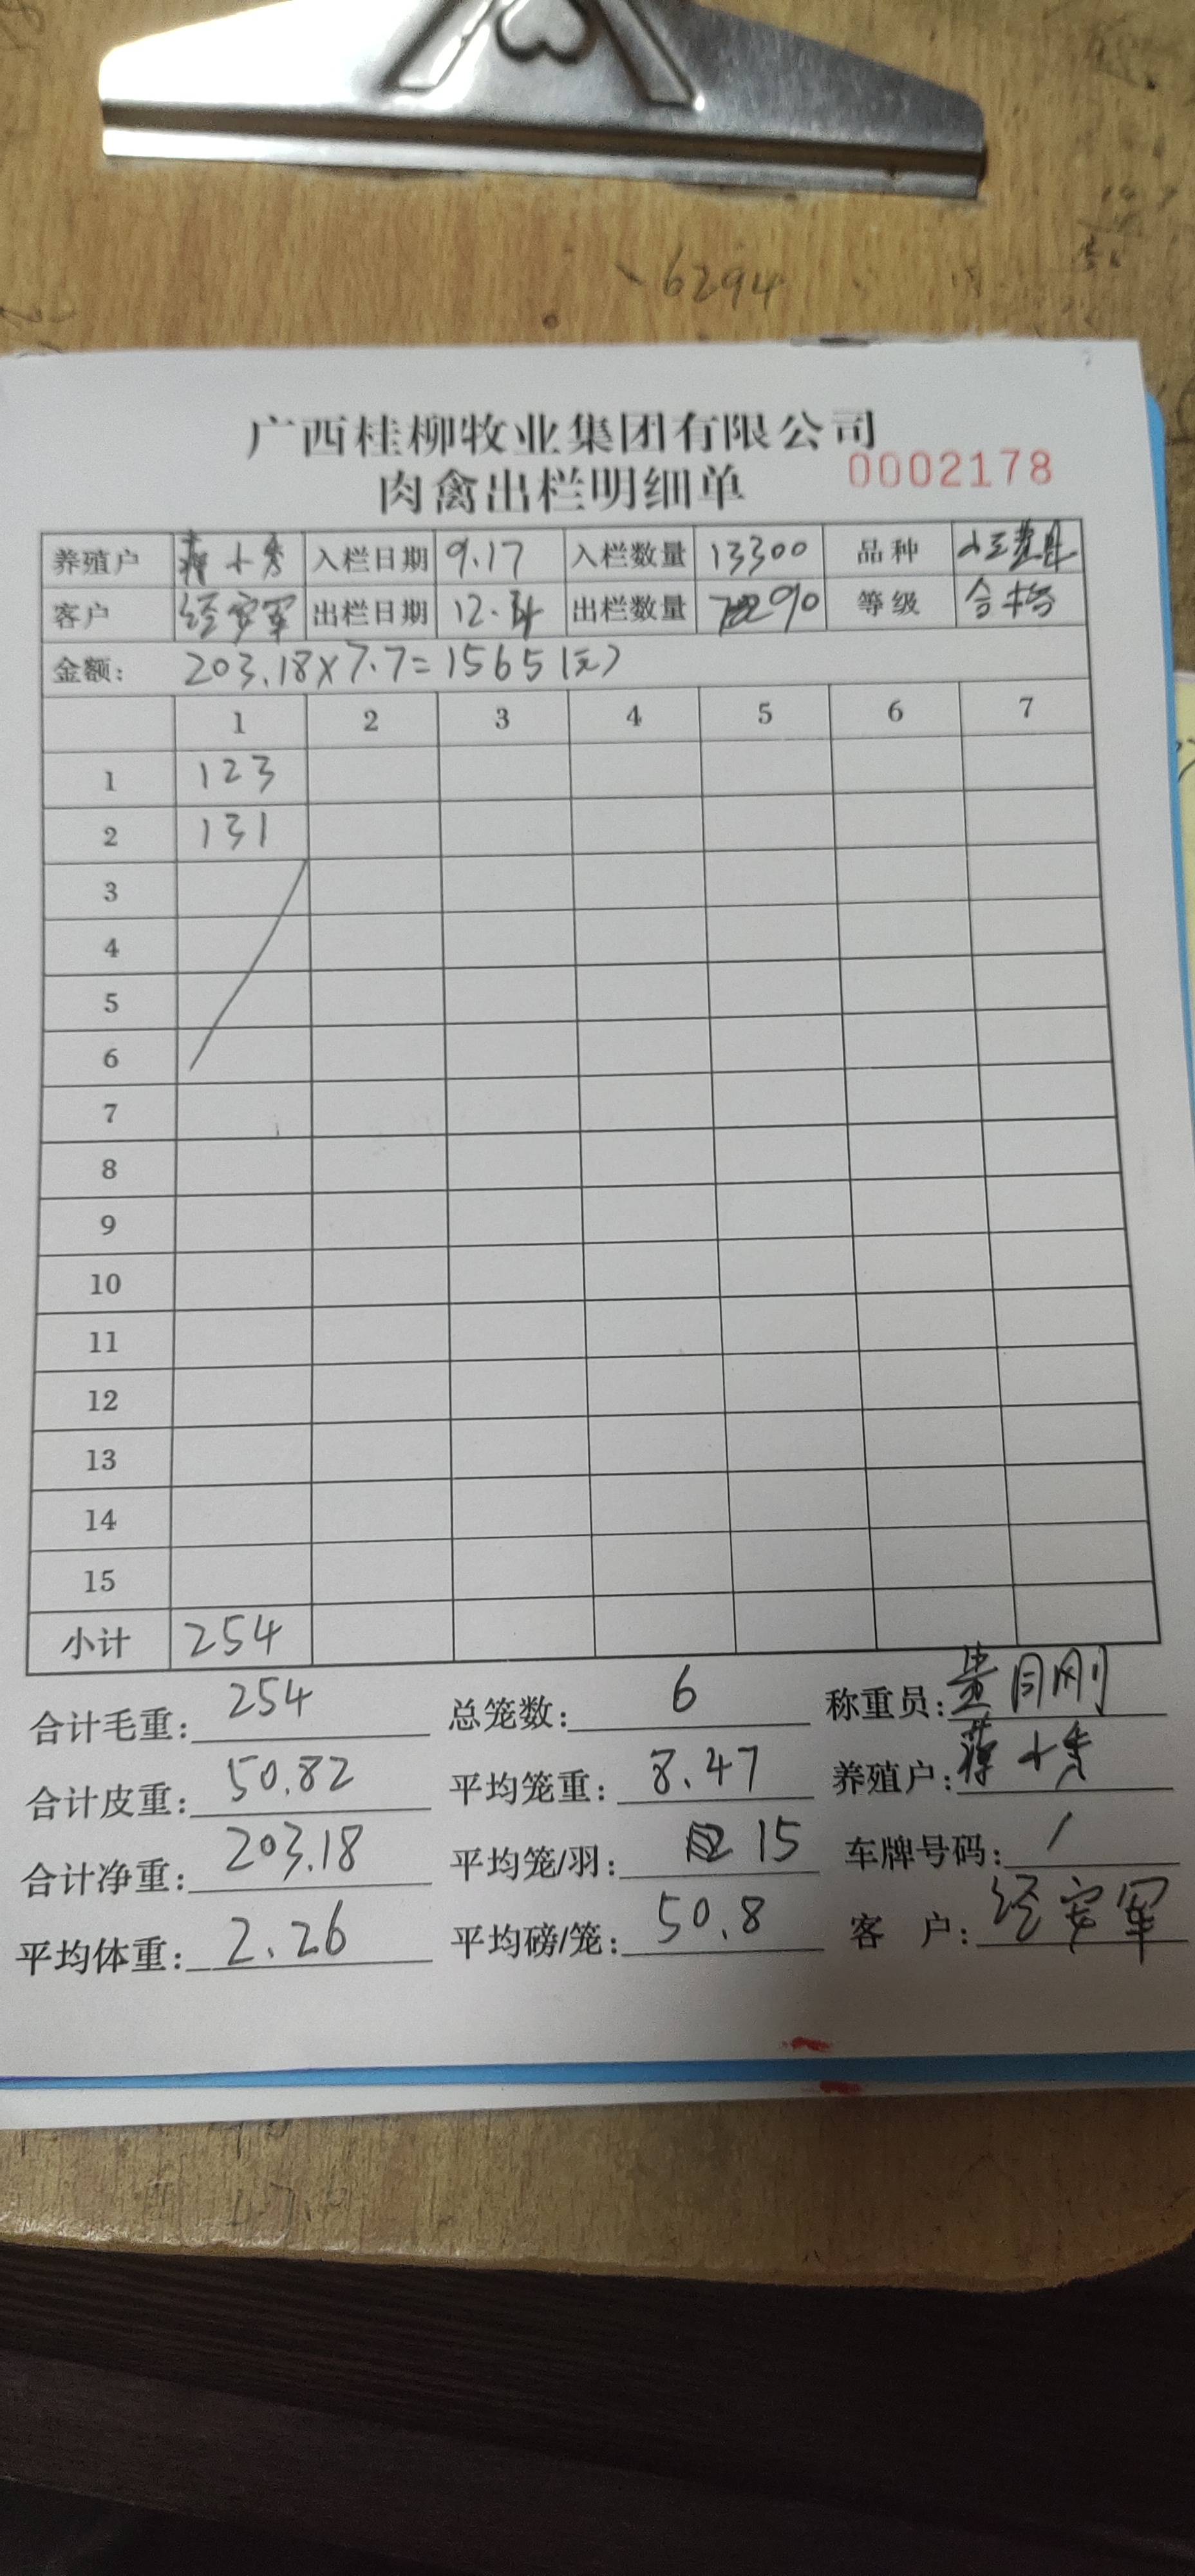 6294
广西桂柳牧业集团有限公司
肉禽出栏明细单 0002178
养殖户 十秀 入栏日期 9.17 入栏数量 13300 品种
客户 经安军 出栏日期 12. 出栏数量 90 等级 合格
金额: 203.18×7.7=1565(元)
1 2 3 4 5 6 7
1 123
2 131
3
4
5
6
7
8
9
10
11
12
13
14
15
小计 254
合计毛重: 254 总笼数: 6 称重员: 黄同刚
合计皮重: 50.82 平均笼重: 8.47 养殖户: 十秀
合计净重: 203.18 平均笼/羽: 15 车牌号码: /
平均体重: 2.26 平均磅/笼: 50.8 客 户: 经安军